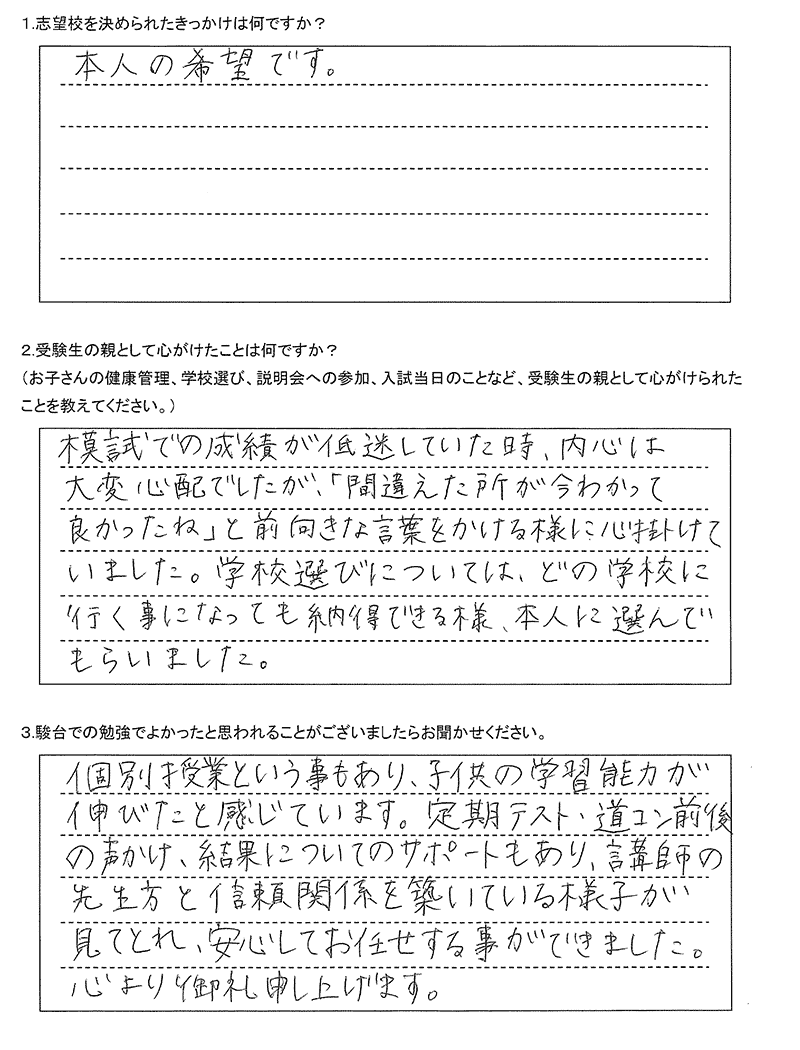 1.志望校を決められたきっかけは何ですか？
本人の希望です。
2.受験生の親として心がけたことは何ですか？
（お子さんの健康管理、学校選び、説明会への参加、入試当日のことなど、受験生の親として心がけられた
ことを教えてください。）
模試での成績が低迷していた時、内心は
大変心配でしたが、「間違えた所が今わかって
良かったね」と前向きな言葉をかける様に心掛けて
いました。学校選びについては、どの学校に
行く事になっても納得できる様、本人に選んで
もらいました。
3.駿台での勉強でよかったと思われることがございましたらお聞かせください。
個別授業という事もあり、子供の学習能力が
伸びたと感じています。定期テスト・道コン前後
の声かけ、結果についてのサポートもあり、講師の
先生方と信頼関係を築いている様子が
見てとれ、安心してお任せする事ができました。
心より御礼申し上げます。